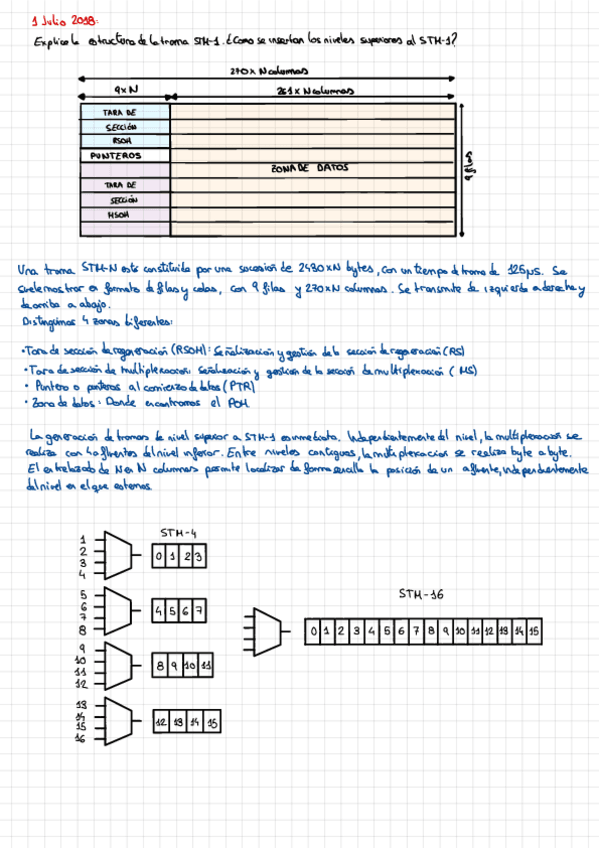 1 Julio 2018:
Explica la estructura de la trama STM-1. ¿Cómo se insertan los niveles superiores al STM-1?
270 x N columnas
9 x N
261 x N columnas
TARA DE
SECCIÓN
RSOH
PUNTEROS
ZONA DE DATOS
TARA DE
SECCIÓN
MSOH
9 filas
Una trama STM-N está constituida por una sucesión de 2430xN bytes, con un tiempo de trama de 125μs. Se
suele mostrar en formato de filas y colas, con 9 filas y 270xN columnas. Se transmite de izquierda a derecha y
de arriba a abajo.
Distinguimos 4 zonas diferentes:
• Tara de sección de regeneración (RSOH): Señalización y gestión de la sección de regeneración (RS)
• Tara de sección de multiplexación: señalización y gestión de la sección de multiplexación (MS)
• Puntero o punteros al comienzo de datos (PTR)
• Zona de datos: Donde encontramos el POH
La generación de tramas de nivel superior a STM-1 es inmediata. Independientemente del nivel, la multiplexación se
realiza con 4 afluentes del nivel inferior. Entre niveles contiguos, la multiplexación se realiza byte a byte.
El entrelazado de N en N columnas permite localizar de forma sencilla la posición de un afluente, independientemente
del nivel en el que estemos.
STM-4
1
2
3
4
0 1 2 3
5
6
7
8
4 5 6 7
STM-16
0 1 2 3 4 5 6 7 8 9 10 11 12 13 14 15
9
10
11
12
8 9 10 11
13
14
15
16
12 13 14 15